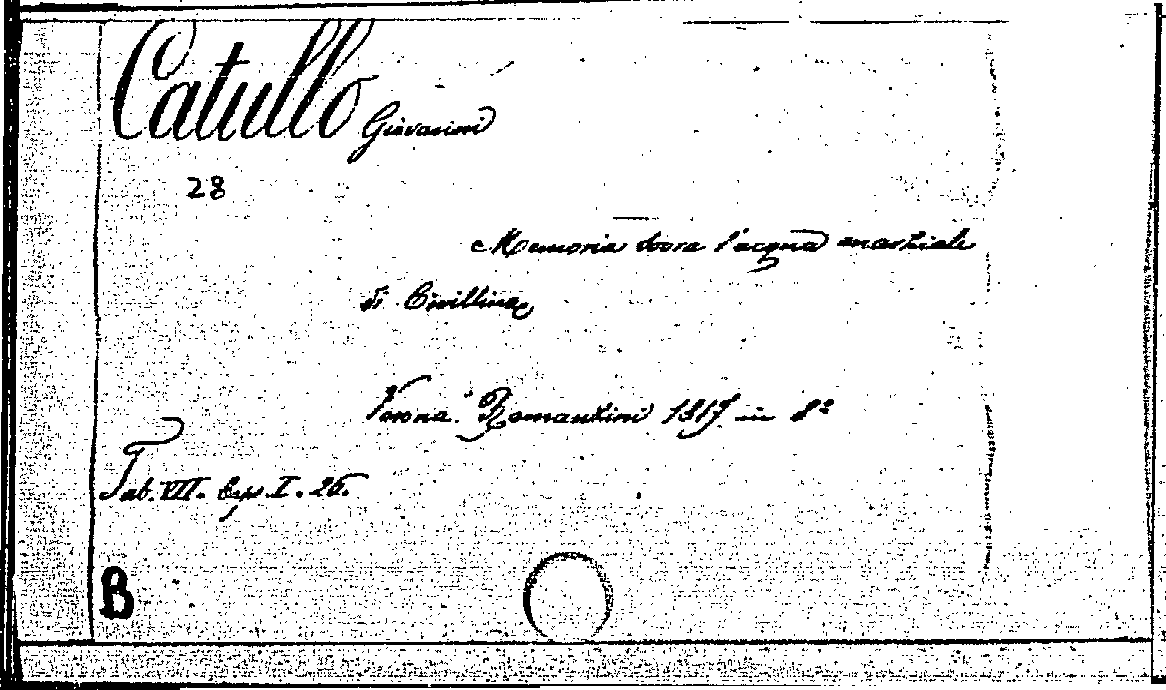 Catullo Giovanni
28
Memoria sovra l'acqua marziale
di Civillina
Verona. Romanzini 1817 in 8º
Tab. VII. Cap. I. 26.
B